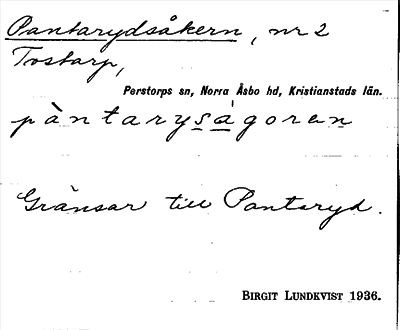 Pantarydsåkern, nr 2
Tostarp,
Perstorps sn, Norra Åsbo hd, Kristianstads län.
pàntaryságoren
Gränsar till Pantaryd.
BIRGIT LUNDKVIST 1936.